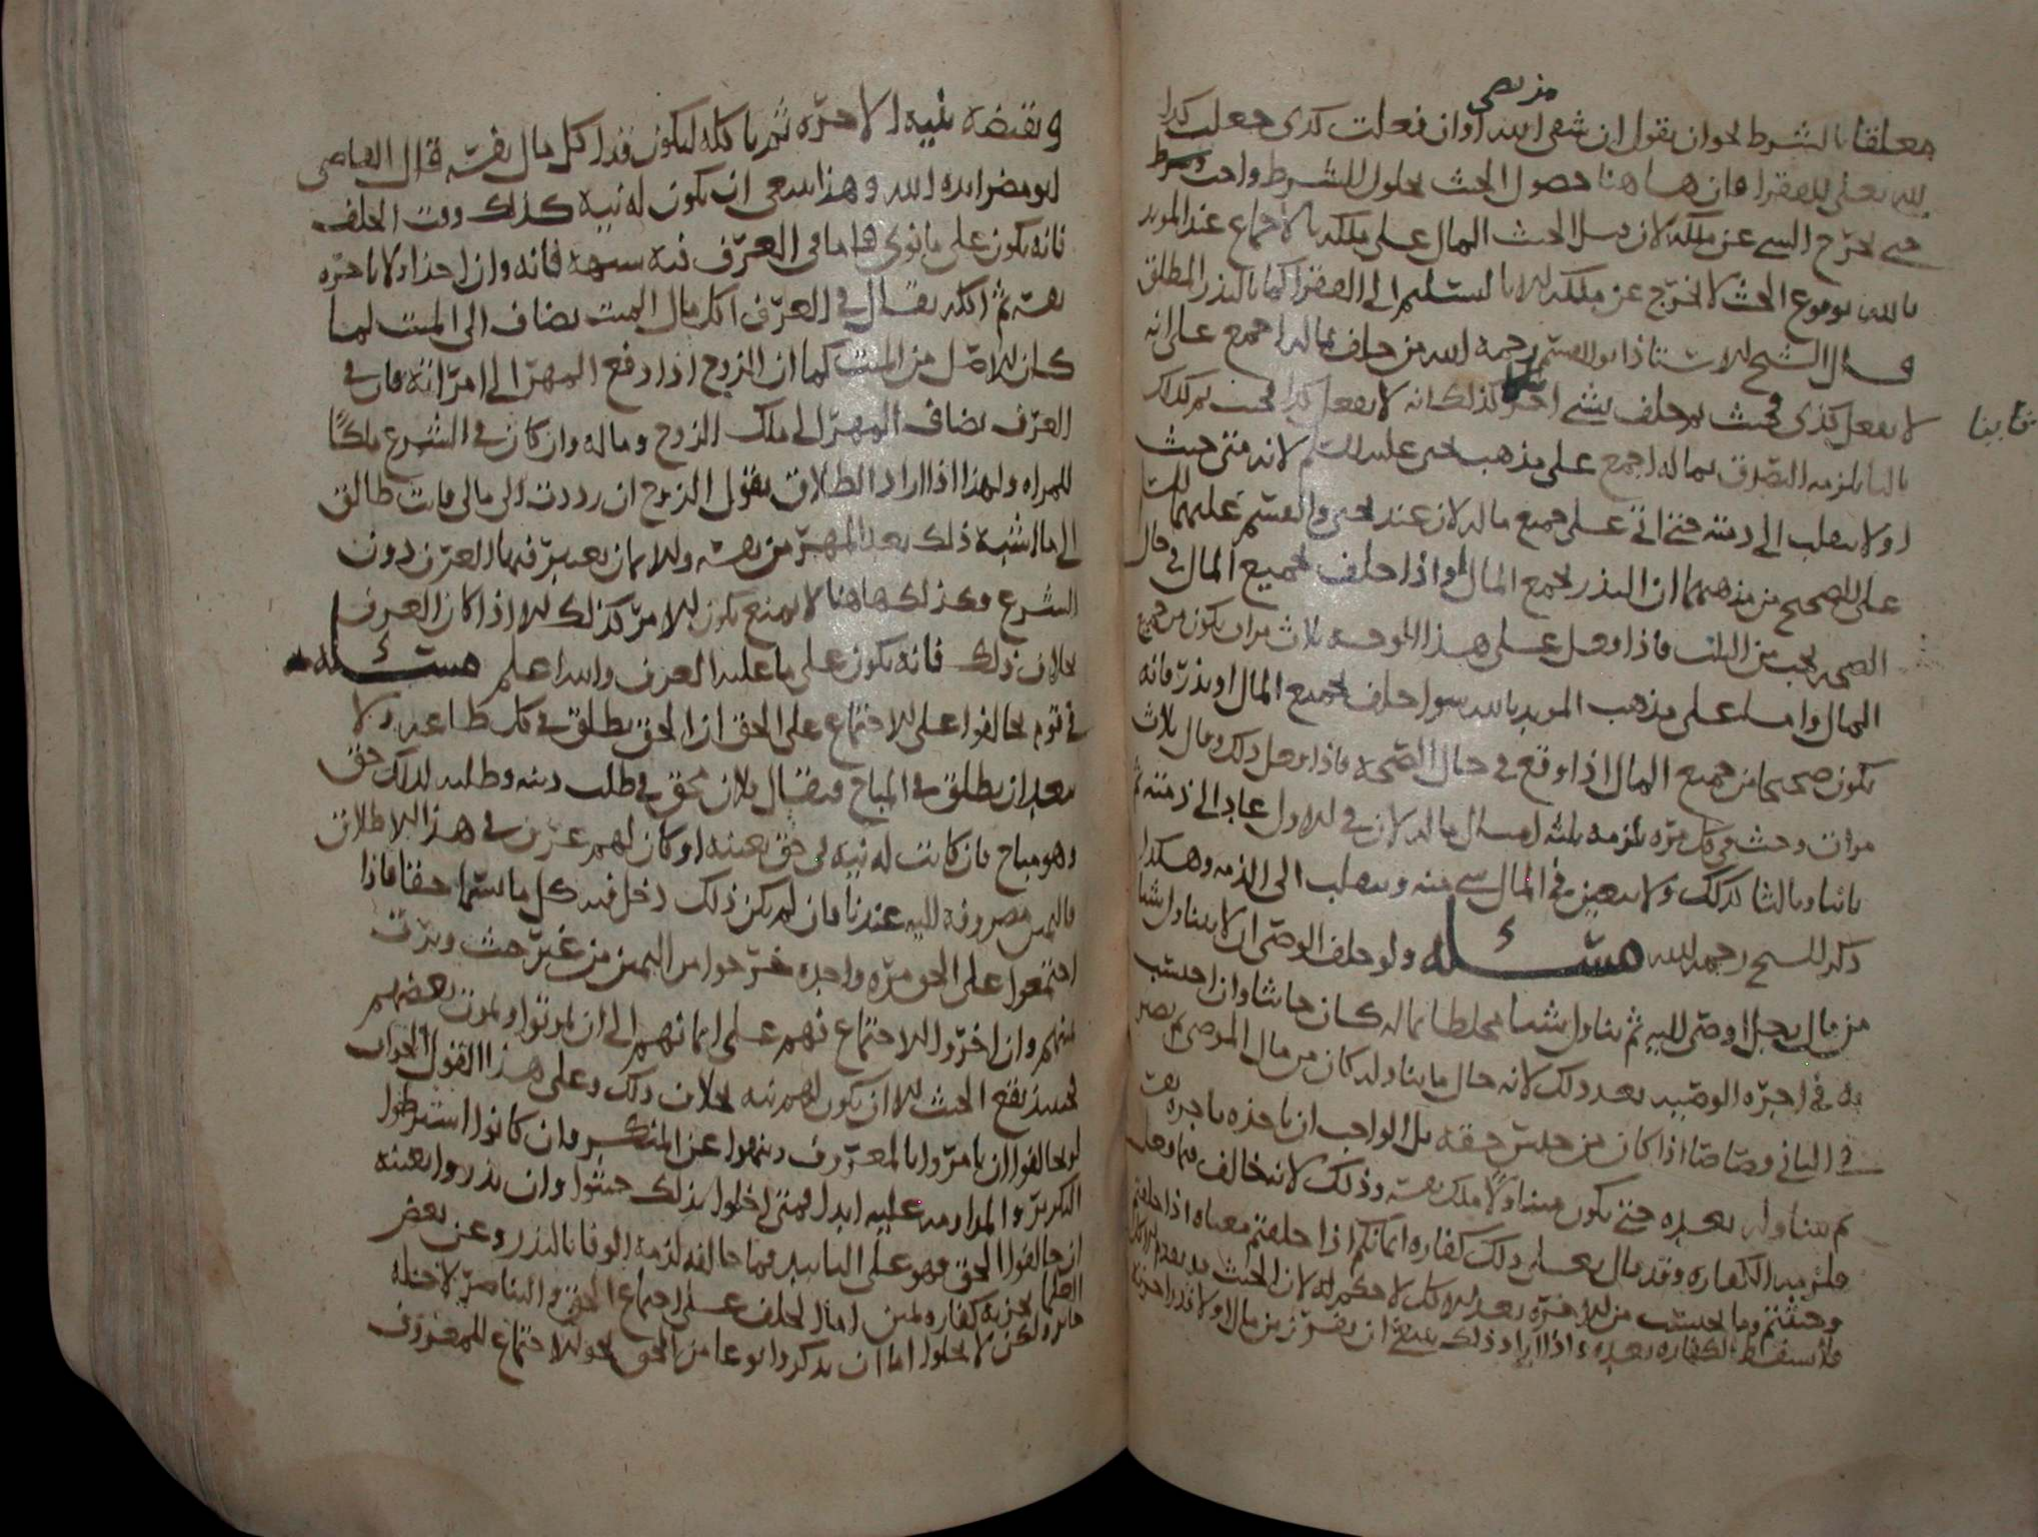 من مرضي
معلقا بالشرط نحو ان يقول ان شفى الله او ان فعلت كذى جعلت كذا
لله تعلى للفقرا فان هاهنا حصول الحنث بحلول الشرط واحب وشرط
حتى يخرج الشي عن ملكه لان قبل الحنث المال على ملكه بالاجماع عند المويد
بالله بوقوع الحنث لا يخرج عن ملكه الا بالتسليم الى الفقرا كما بالنذر المطلق
قال الشيخ الاستاذ ابو القسم رحمه الله من حلف بماله اجمع على انه
لا يفعل كذى فحنث ثم حلف بشي اخر كذلك انه لا يفعل كذا فحنث ثم كذلك
ثانيا
ثالثا يلزمه التصدق بماله اجمع على مذهب يحيى عليه السلم لانه متى حنث
اولا ينقلب الى ذمته حتى اتى على جميع ماله لان عند يحيى والقسم عليهما السلم
على الصحيح من مذهبهما ان النذر بجميع المال واذا حلف بجميع المال في حال
الصحه يجب من الثلث فاذا فعل على هذا الوجه ثلاث مرات يكون من جميع
المال واما على مذهب المويد بالله سوا حلف بجميع المال او نذر فانه
يكون صحيحا من جميع المال اذا وقع في حال الصحه فاذا فعل ذلك وقال ثلاث
مرات وحنث في كل مره يلزمه ثلثه امثال ماله لان في الاول عاد الى ذمته ثم
ثانيا وثالثا كذلك ولا يتعين في المال شي منه وينقلب الى الذمه وهكذا
ذكر الشيخ رحمه الله مسئله ولو حلف الوصي ان لا يتناول شيا
من مال رجل اوصى اليه ثم تناول شيا مختلطا بماله كان حانثا وان احتسب
به في اجره الوصيه بعد ذلك لانه حال ما يتناوله كان من مال الموصي ثم يصير
في الثاني قصاصا اذا كان من جنس حقه بل الواجب ان ياخذه باجره نفسه
ثم يتناوله بعده حتى يكون متناولا ملك نفسه وذلك لانه خالف فيما فعل
فلزمته الكفاره وقد قال تعلى ذلك كفاره ايمانكم اذا حلفتم معناه اذا حلفتم
وحنثتم وما يحتسب من الاجره بعد الاكل لا حكم له لان الحنث قد تقدم
فلا يسقط الكفاره بعده واذا اراد ذلك ينبغي ان يفرز من مال اولا قدر اجرته
ويقبضه بنيه الاجره ثم ياكله ليكون قد اكل مال نفسه قال القاضي
ابو مضر ايده الله وهذا ينبغي ان يكون له نيه كذلك وقت الحلف
فانه يكون على ما نوى فاما في العرف فيه شبهه فانه وان اخذ اولا باجره
نفسه ثم اكله يقال في العرف اكل مال الميت يضاف الى الميت لما
كان الاصل من الميت كما ان الزوج اذا دفع المهر الى امراته فان في
العرف يضاف المهر الى ملك الزوج وماله وان كان في الشرع ملكا
للمراه ولهذا اذا اراد الطلاق يقول الزوج ان رددت الى مالى فانت طالق
الى ما اشبه ذلك بعد المهر من نفسه والايمان يعتبر فيها العرف دون
الشرع فكذلك هاهنا لا يمتنع يكون الامر كذلك الا اذا كان العرف
بخلاف ذلك فانه يكون على ما عليه العرف والله اعلم مسئله
في قوم تحالفوا على الاجتماع على الحق ان الحق يطلق في كل طاعه ولا
يبعد ان يطلق في المباح فيقال فلان محق في طلب دينه وطلبه لذلك حق
وهو مباح فان كانت له نيه في حق بعينه او كان لهم عرف في هذا الاطلاق
فاليمين مصروفه اليه عندنا فان لم يكن ذلك دخل فيه كل ما يسما حقا فاذا
اجتمعوا على الحق مره واحده خرجوا من اليمين من غير حنث وبرت
منهم وان اخروا الاجتماع فهم على ايمانهم الى ان يموتوا او يموت بعضهم
فحينئذ يقع الحنث الا ان يكون لهم نيه بخلاف ذلك وعلى هذا القول الجواب
لو تحالفوا ان يامروا بالمعروف وينهوا عن المنكر وان كانوا اشترطوا
التكرير والمداومه عليه ابدا فمتى اخلوا بذلك حنثوا وان نذروا بعينه
ان خالفوا الحق فهو على التابيد فيما خالفه لزمه الوفا بالنذر وعن بعض
العلما يجزيه كفاره يمين اما الحلف على اجتماع الحق والتناصر لاجله
جايز ولكن لا يخلوا اما ان يذكروا نوعا من الحق نحو الاجتماع للمعروف